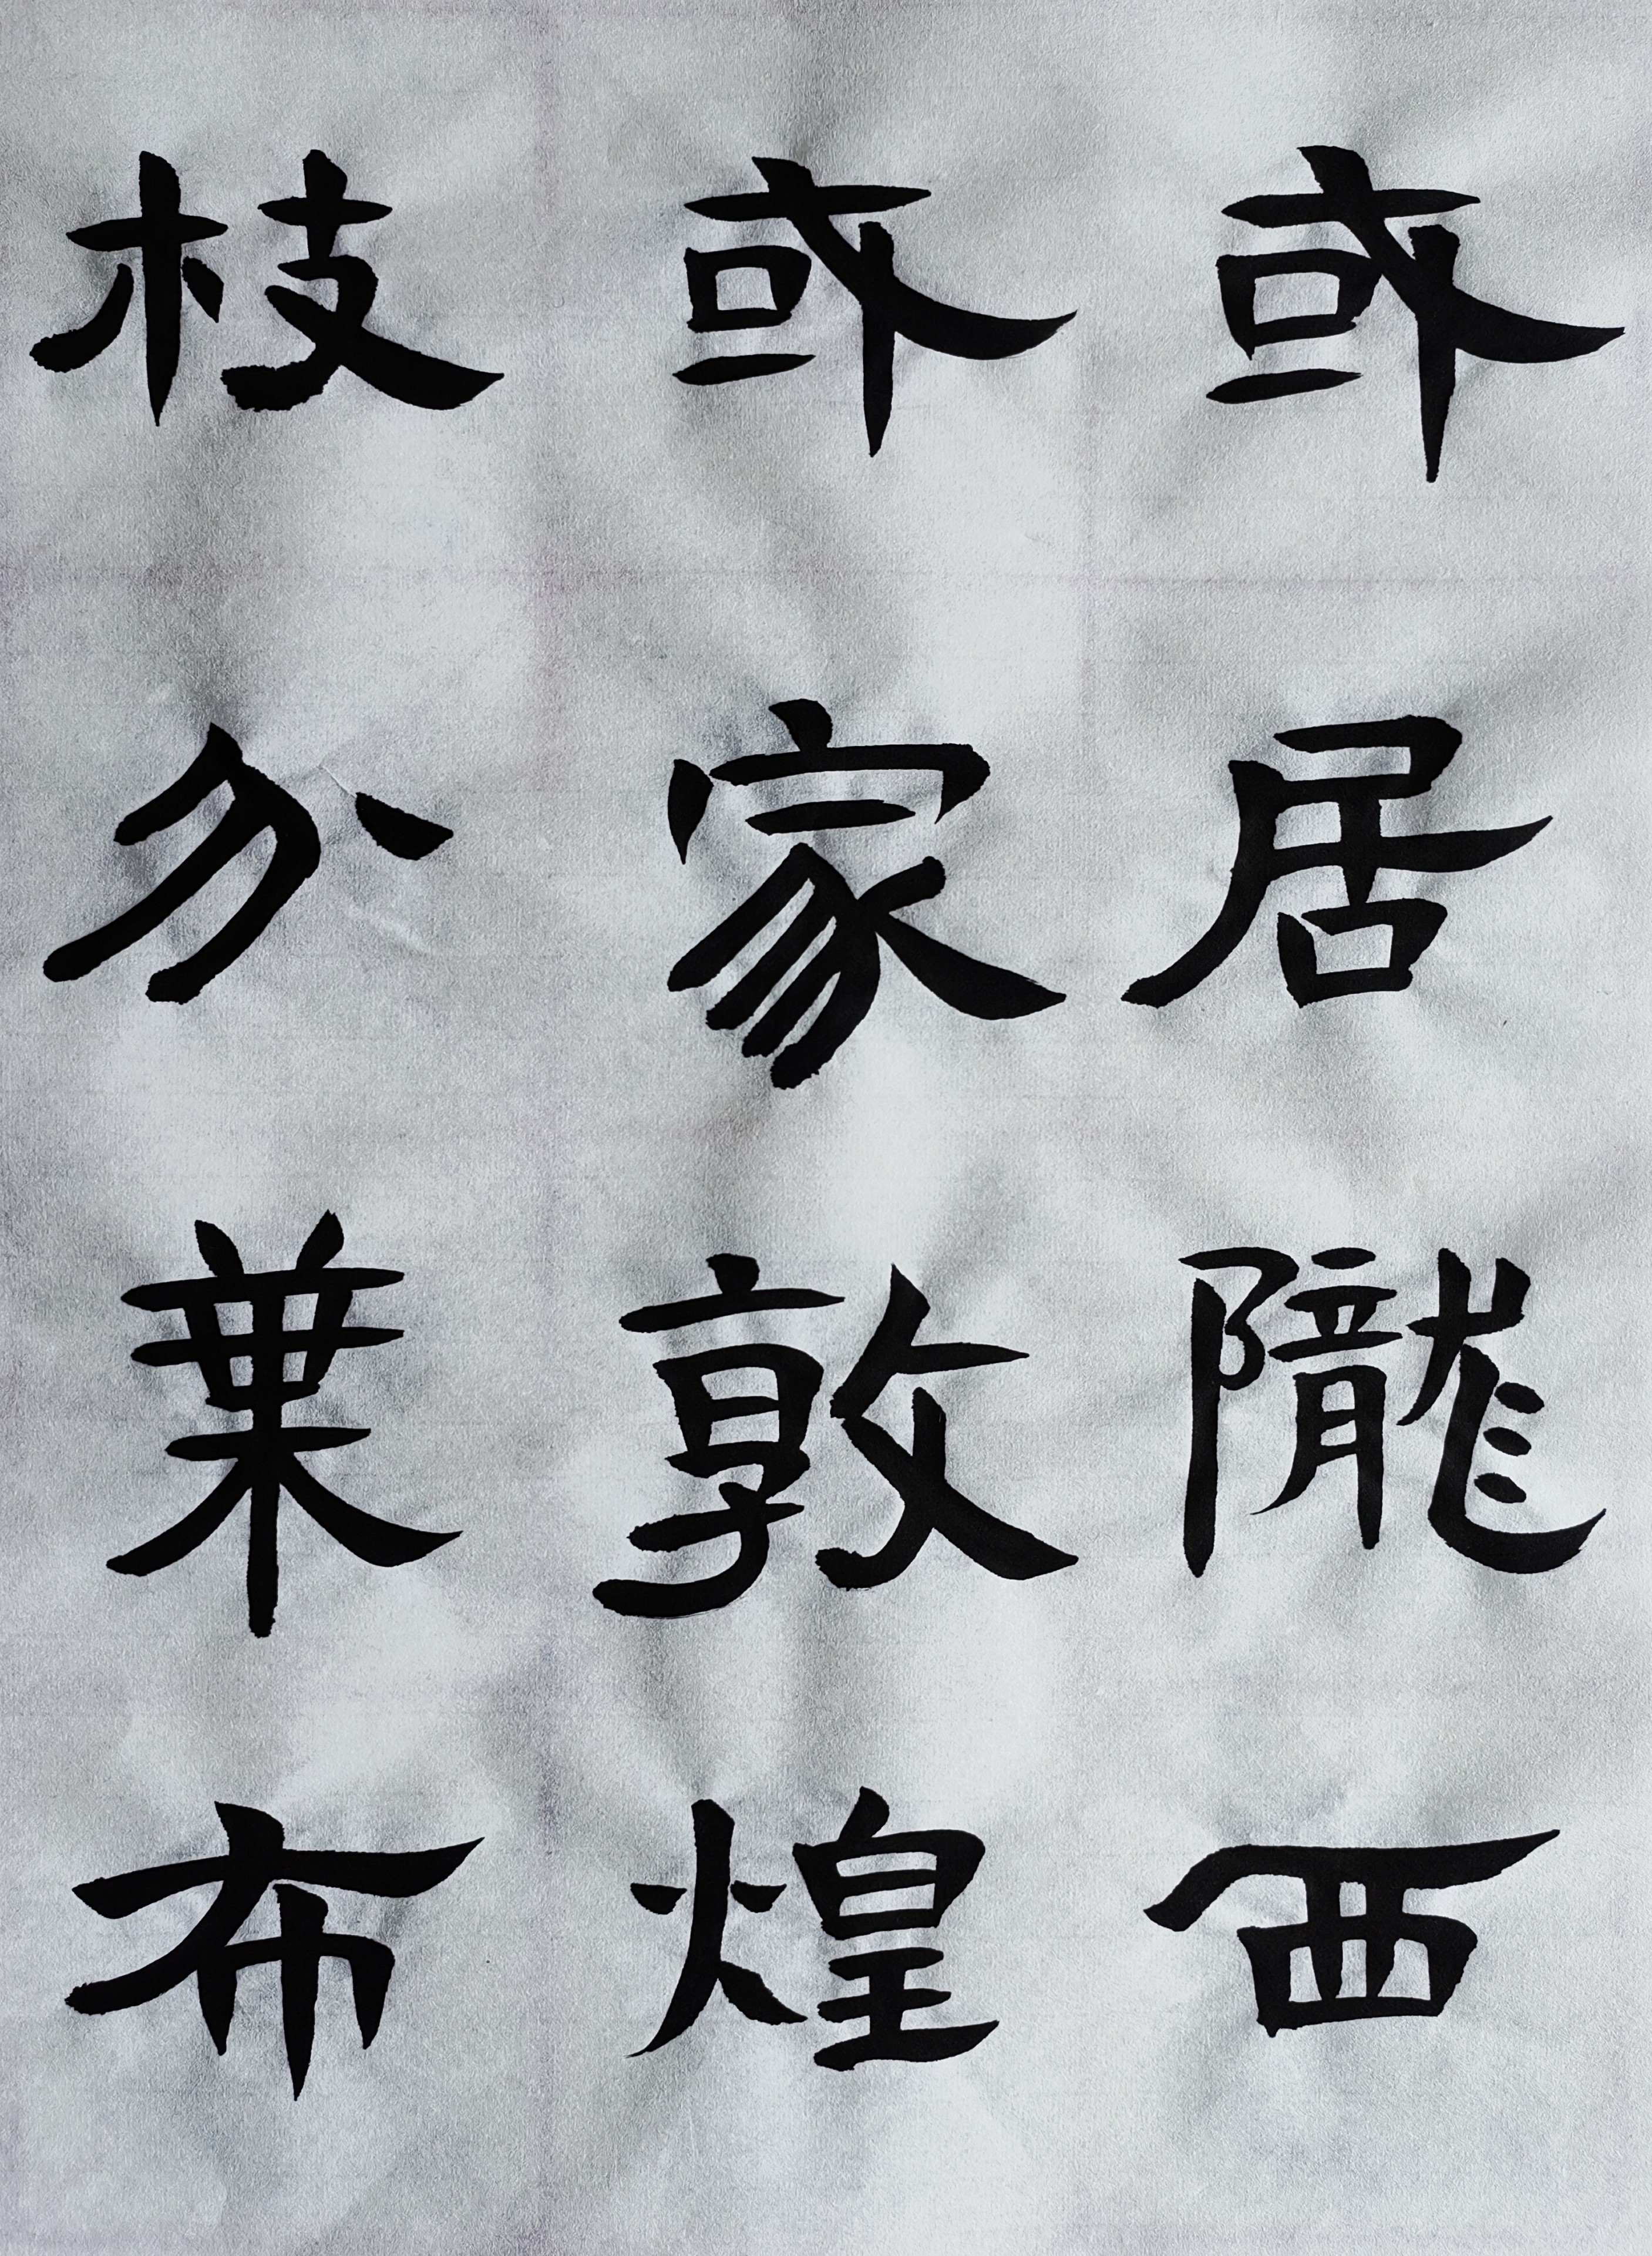 或居隴西
或家敦煌
枝分葉布